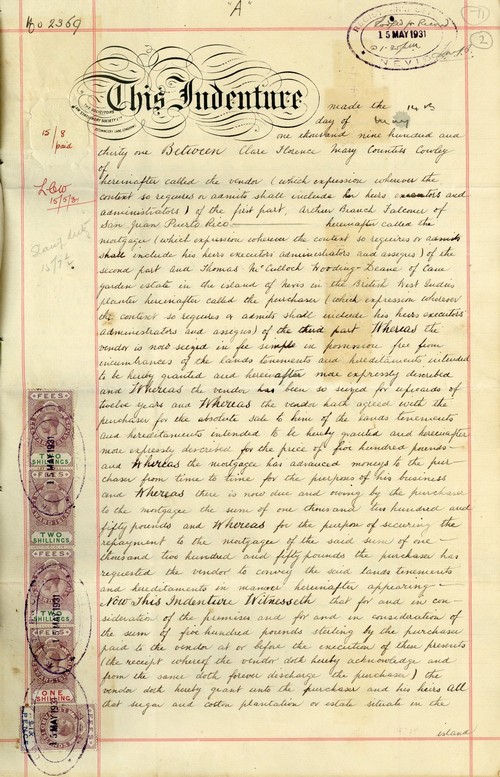 "A"
No 2369
REGISTRAR'S OFFICE
15 MAY 1931
NEVIS
2
This Indenture
THE SOLICITORS
LAW STATIONERY SOCIETY LTD
CHANCERY LANE LONDON
made the 14th
day of May
one thousand nine hundred and
thirty one Between Clare Florence Mary Countess Cowley
of
hereinafter called the vendor (which expression wherever the
context so requires or admits shall include her heirs executors and
administrators) of the first part, Arthur Branch Falconer of
San Juan Puerto Rico hereinafter called the
mortgagee (which expression wherever the context so requires or admits
shall include his heirs executors administrators and assigns) of the
second part and Thomas McCulloch Wooding-Deane of Cane
garden estate in the island of Nevis in the British West Indies
planter hereinafter called the purchaser (which expression wherever
the context so requires or admits shall include his heirs executors
administrators and assigns) of the third part Whereas the
vendor is now seized in fee simple in possession free from
incumbrances of the lands tenements and hereditaments intended
to be hereby granted and hereinafter more expressly described
and Whereas the vendor has been so seized for upwards of
twelve years and Whereas the vendor hath agreed with the
purchaser for the absolute sale to him of the lands tenements
and hereditaments intended to be hereby granted and hereinafter
more expressly described for the price of five hundred pounds -
and Whereas the mortgagee has advanced moneys to the pur
chaser from time to time for the purposes of his business
and Whereas there is now due and owing by the purchaser
to the mortgagee the sum of one thousand two hundred and
fifty pounds and Whereas for the purpose of securing the
repayment to the mortgagee of the said sum of one -
thousand two hundred and fifty pounds the purchaser has
requested the vendor to convey the said lands tenements
and hereditaments in manner hereinafter appearing -
Now This Indenture Witnesseth that for and in con-
sideration of the premises and for and in consideration of
the sum of five hundred pounds sterling by the purchaser
paid to the vendor at or before the execution of these presents
(the receipt whereof the vendor doth hereby acknowledge and
from the same doth forever discharge the purchaser) the
vendor doth hereby grant unto the purchaser and his heirs All
that sugar and cotton plantation or estate situate in the
island
15/8
paid
15/5/31
FEES
TWO
SHILLINGS
FEES
TWO
SHILLINGS
FEES
TWO
SHILLINGS
FEES
ONE
SHILLING
SIX
PENCE
15 MAY 1931
15 MAY 1931
15 MAY 1931